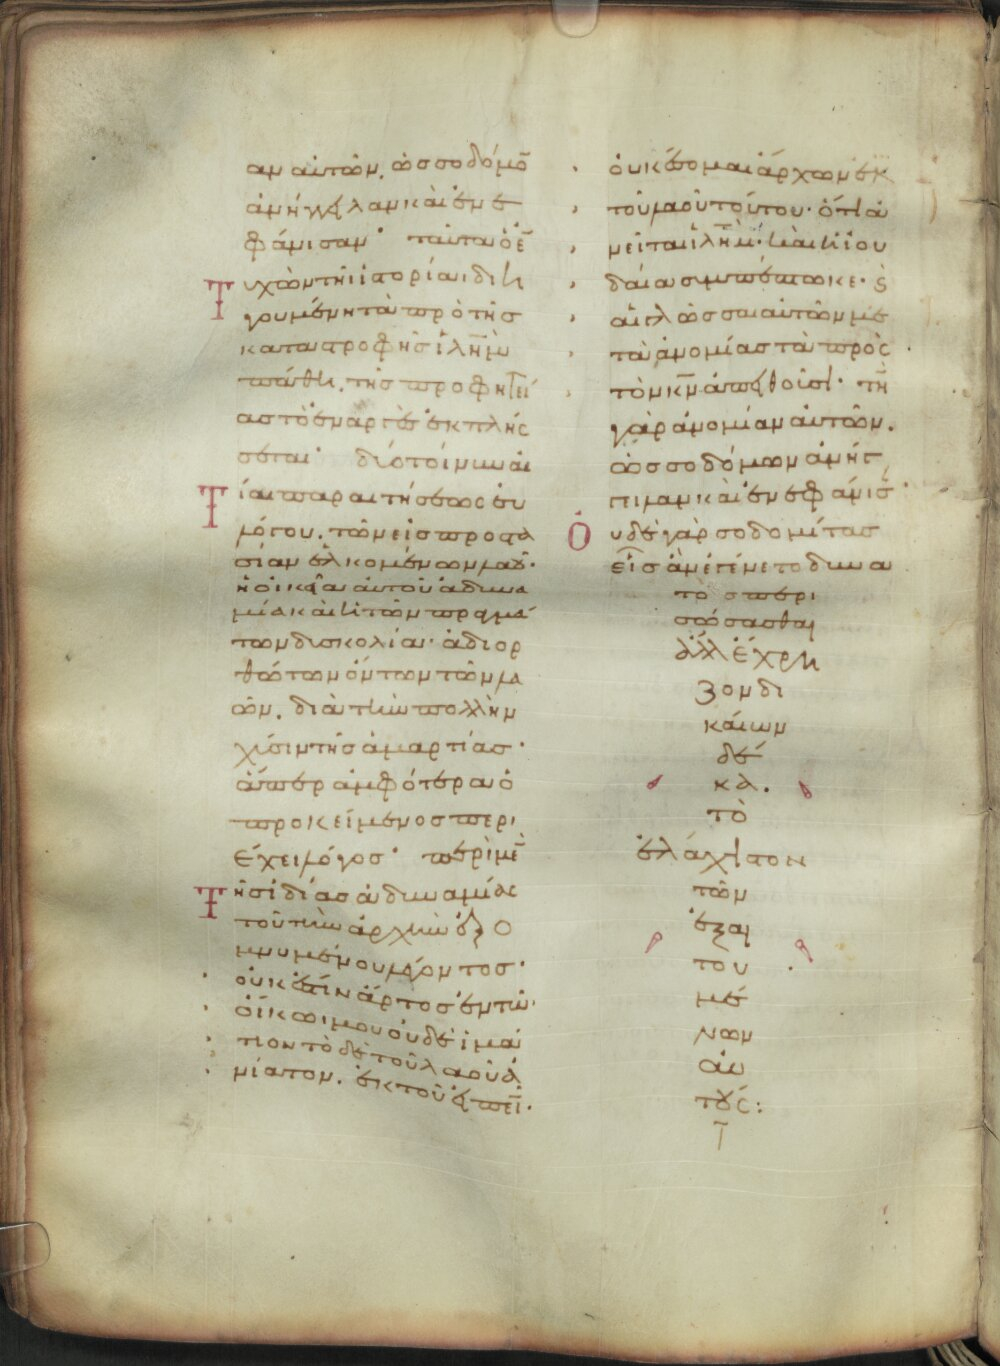 αν αὐτῶν. ὡς σοδόμω̅
ἀνήγγειλαν καὶ ἐνε
φάνισαν· ταῦτα ὁ ἐ̅
Τυχὼν τῆι ἱστορίαι διη
γουμένη τὰ πρὸ τῆς
καταστροφῆς ἱλη̅μ̀
πάθη. τῆς προφητεί
ας τὸ ἐναργὲς ἐκπλής
σεται· διὸ τοίνυν αἰ
Τίαι παραιτήσεως ἐν
λόγου. τῶν εἰς προστα
σίαν ἑλκομένων λαοῦ·
ἡ οἰκεία αὐτοῦ ἀδυνα
μία καὶ ἡ τῶν πραγμά
των δυσκολία· ἀδιορ
θώτων ὄντων τῶν λα
ῶν. διὰ τὴν πολλὴν
χύσιν τῆς ἁμαρτίας·
ἅπερ ἀμφότερα ὁ
προκείμενος περι
έχει λόγος· περὶ με̅
Τῆς ἰδίας ἀδυναμίας
τοῦ τὴν ἀρχὴν ἐξο
μνυμένου λέγοντος·
οὐκ ἔστιν ἄρτος ἐν τῶ·
οἴκω μου οὐδὲ ἱμά
τιον τὸ δὲ τοῦ λαοῦ ἀ
νίατον. ἐκ τοῦ ἐπει·
οὐκ ἔσομαι ἀρχων ἐκ
τοῦ λαοῦ τούτου· ὅτι ἀ
νεῖται ἱλη̅μ̀· καὶ ἡ ἰου
δαία συμπέπτωκε·
αἱ γλῶσσαι αὐτῶν με
τὰ ἀνομίας τὰ πρὸς
τὸν κ̅ν ἀπειθοῦσι· τὴ̅
γὰρ ἀνομίαν αὐτῶν.
ὡς σοδόμων ἀνήγ
γειλαν καὶ ἐνεφάνισ̅·
Οὐδὲ γὰρ σοδομίτας
εἷς ἂν ἐγένετο δίκαι
το σπερι
σώσασθαι
ἀλλ' ἔχρη
ζον δι
καίων
δέ
κα.
τὸ
ἐλάχιστον
τῶν
ἐξαι
του
μέ
νων
αὐ
τούς: